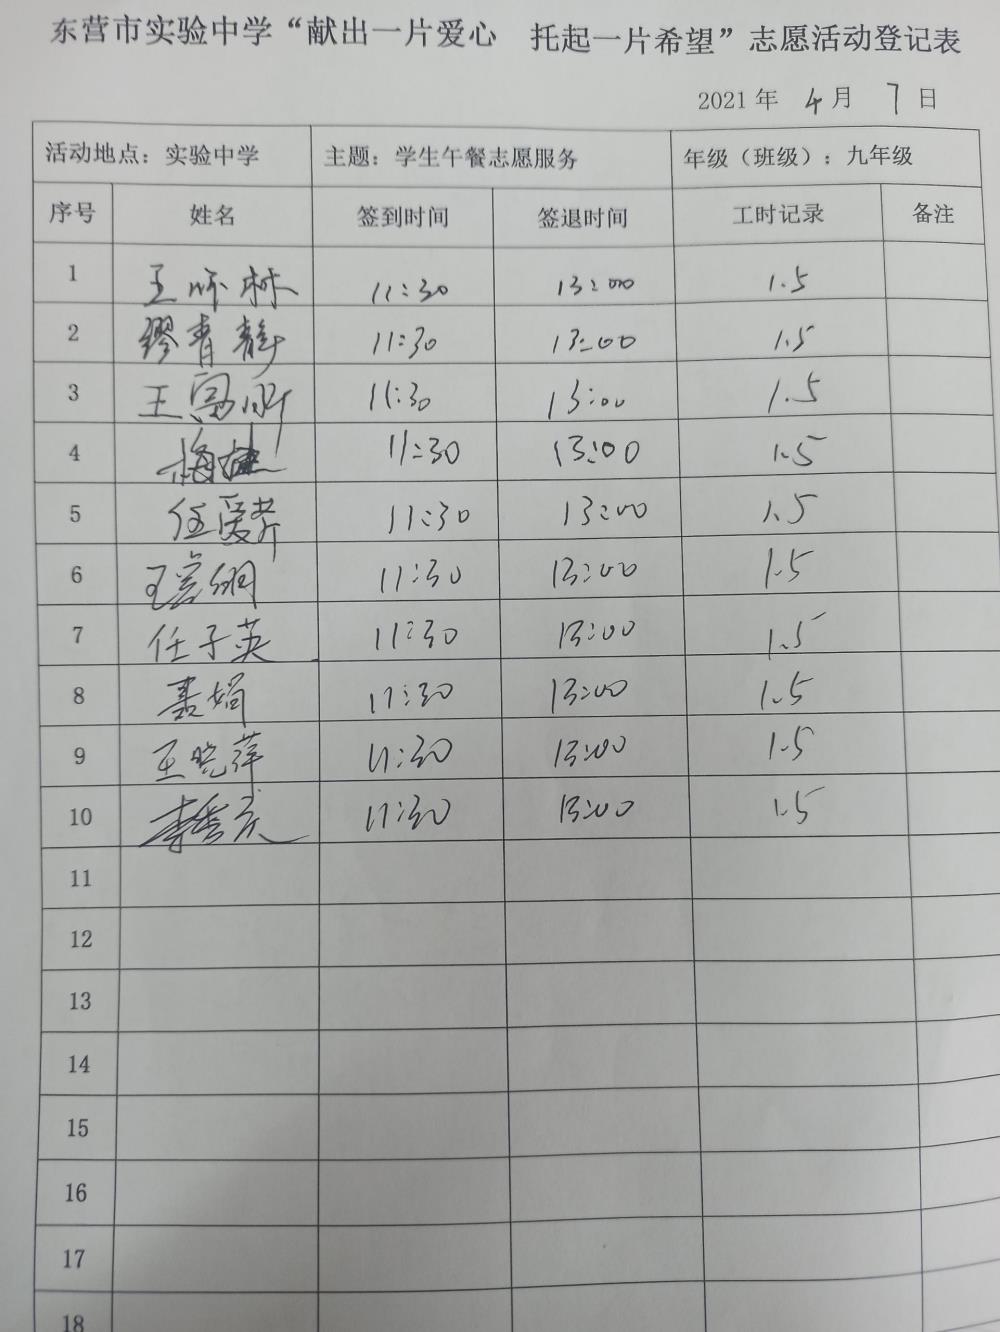 东营市实验中学“献出一片爱心 托起一片希望”志愿活动登记表
2021 年 4 月 7 日
活动地点：实验中学 主题：学生午餐志愿服务 年级（班级）：九年级
序号 姓名 签到时间 签退时间 工时记录 备注
1 王 林 11:30 13:00 1.5
2 缪青静 11:30 13:00 1.5
3 王 11:30 13:00 1.5
4 梅 11:30 13:00 1.5
5 任爱芹 11:30 13:00 1.5
6 王 11:30 13:00 1.5
7 任子英 11:30 13:00 1.5
8 娟 11:30 13:00 1.5
9 王晓萍 11:30 13:00 1.5
10 李 11:30 13:00 1.5
11
12
13
14
15
16
17
18